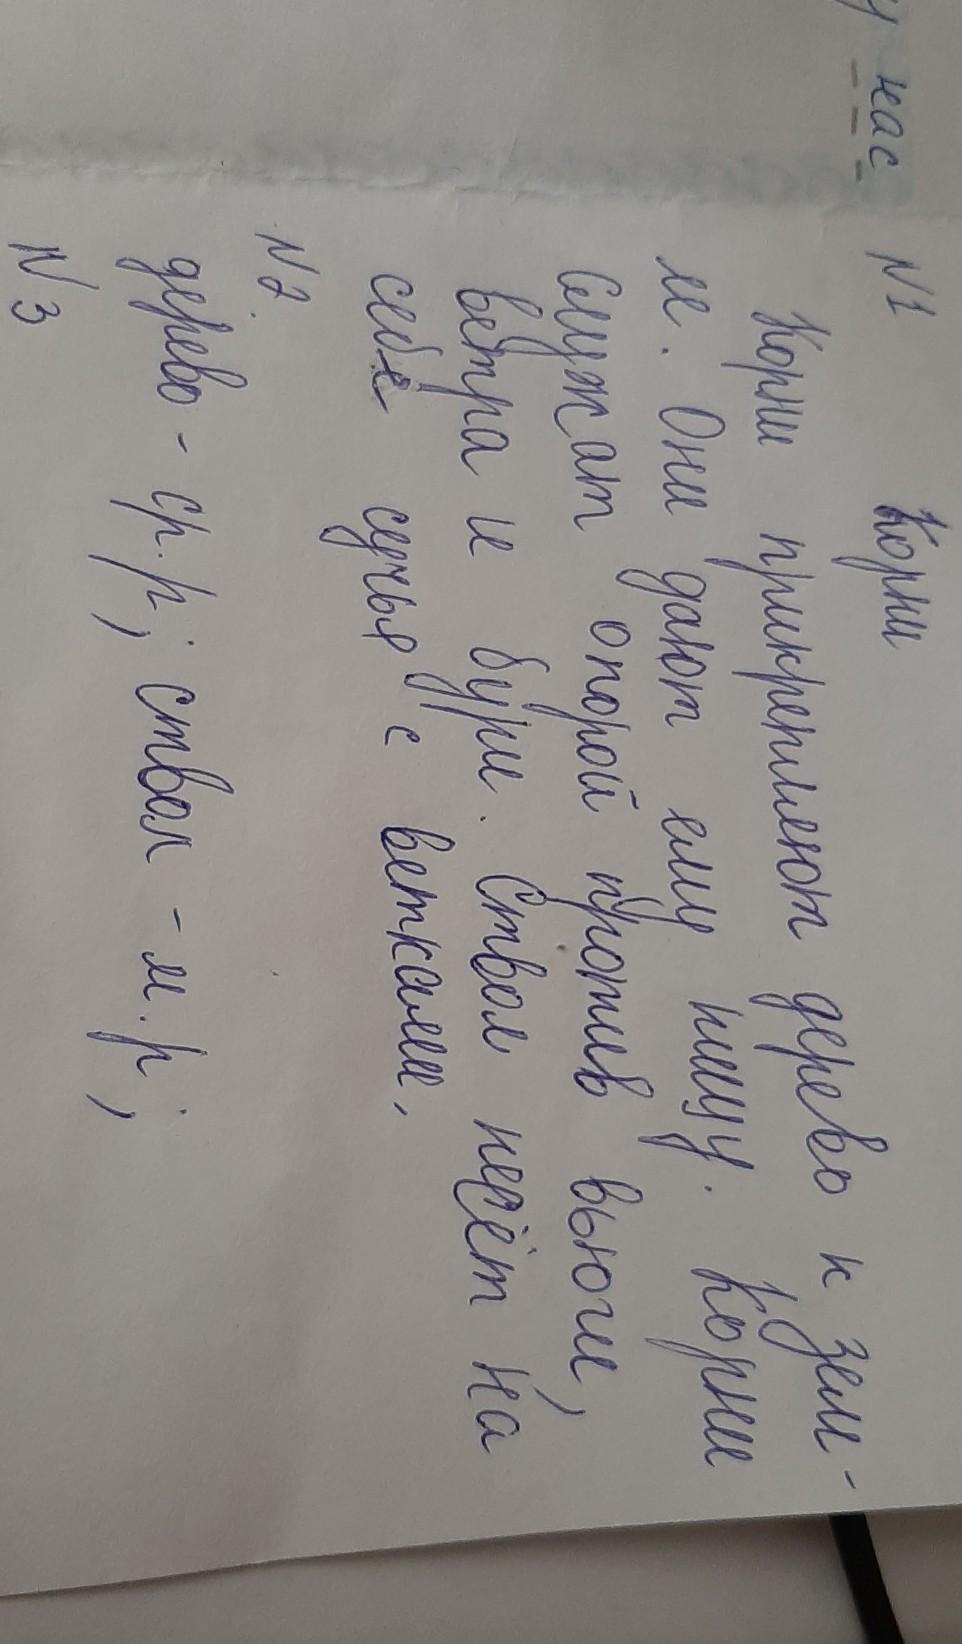 у нас
N1
Корни
Корни прикрепляют дерево к зем-
ле. Они дают ему пищу. Корни
служат опорой против вьюги,
ветра и бури. Ствол несёт на
себе сучья с ветками.
N2
дерево - ср. р; ствол - м. р;
N 3